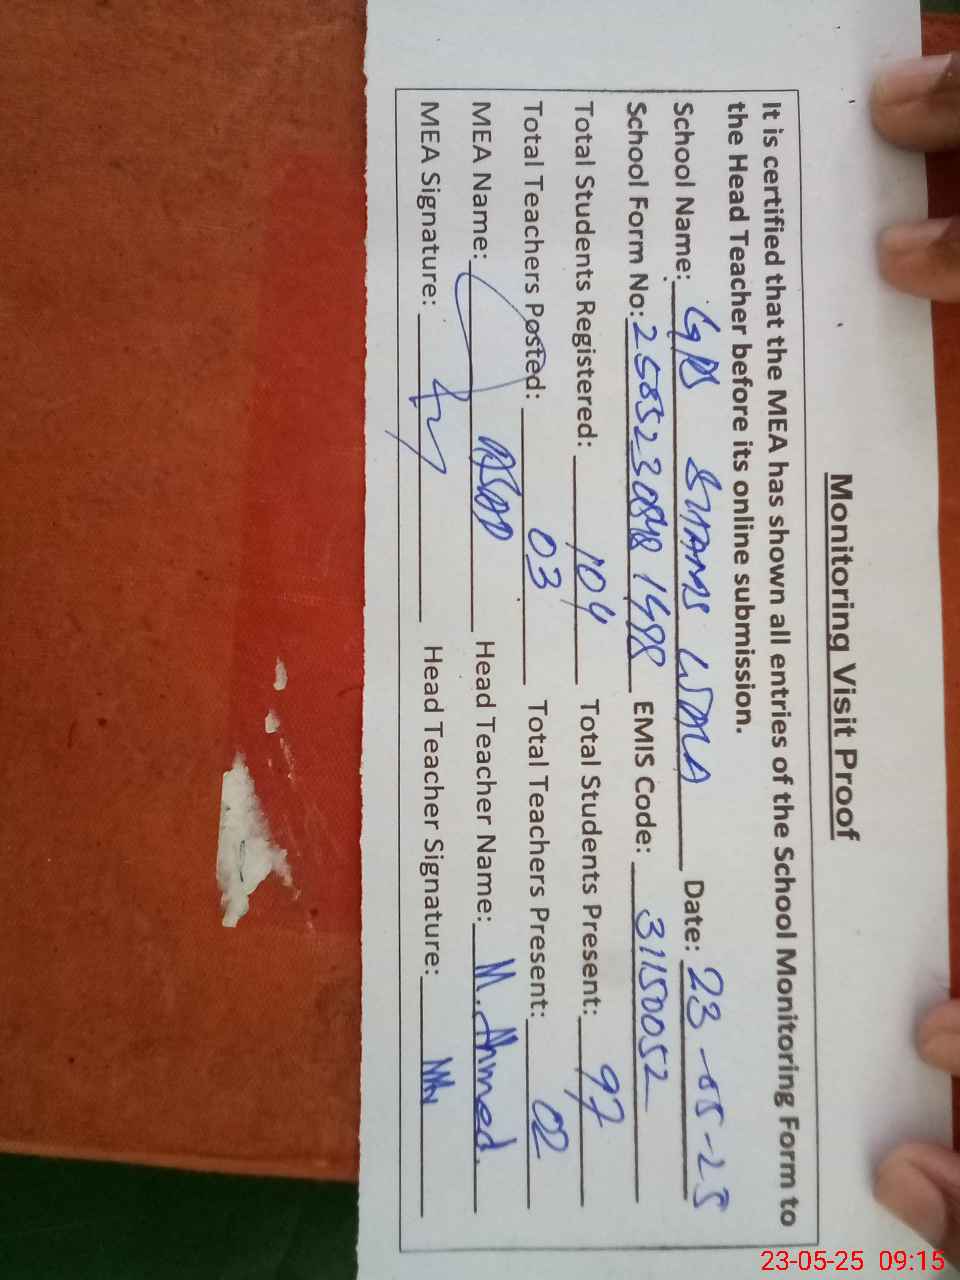 Monitoring Visit Proof
It is certified that the MEA has shown all entries of the School Monitoring Form to
the Head Teacher before its online submission.
School Name: GPS SHAMS WALA Date: 23-05-25
School Form No: EMIS Code: 31150052
Total Students Registered: 104 Total Students Present: 97
Total Teachers Posted: 03 Total Teachers Present: 02
MEA Name: ASAD Head Teacher Name: M. Ahmed.
MEA Signature: Head Teacher Signature:
23-05-25 09:15